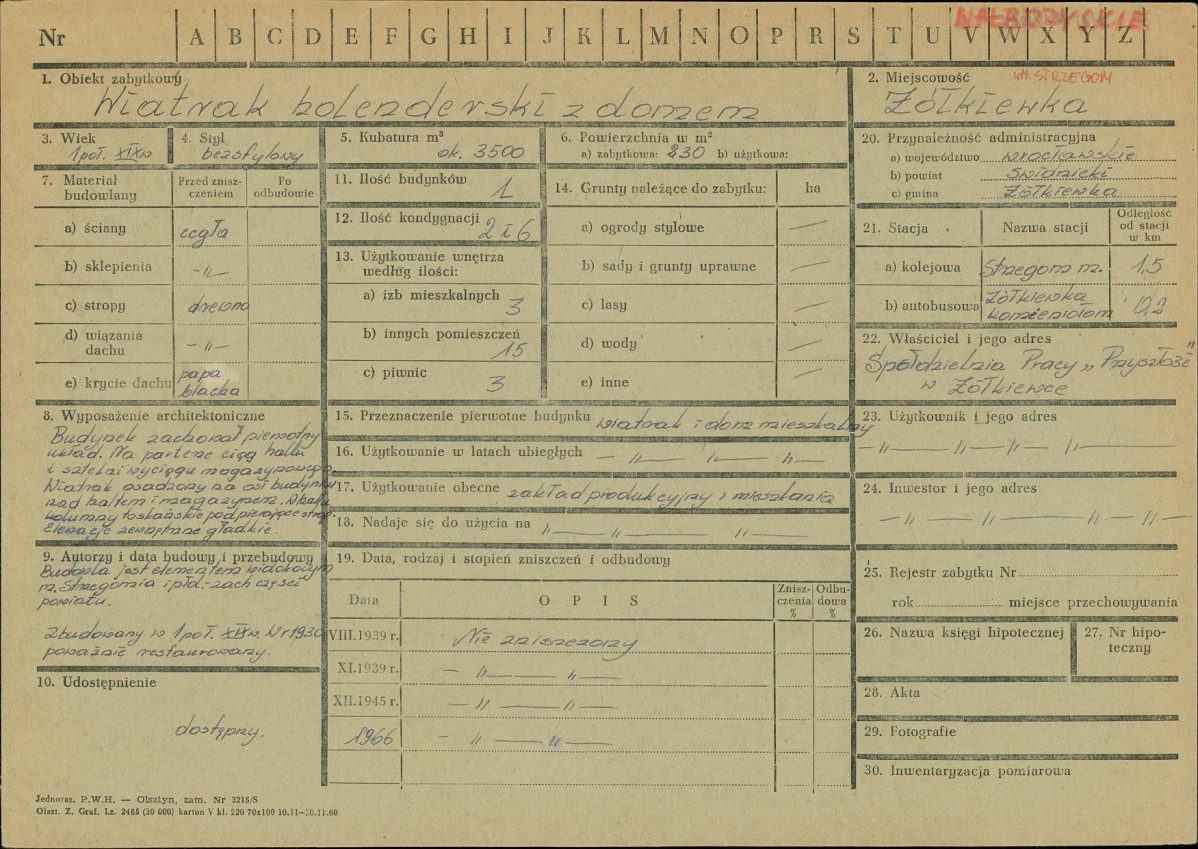 NAŁBRZYSKIE
Nr A B C D E F G H I J K L M N O P R S T U V W X Y Z
1. Obiekt zabytkowy
Wiatrak holenderski z domem
2. Miejscowość
UM. STRZEGOM
Żółkiewka
3. Wiek
1 poł. XIXw
4. Styl
bezstylowy
5. Kubatura m³
ok. 3500
6. Powierzchnia w m²
a) zabytkowa: 230 b) użytkowa:
20. Przynależność administracyjna
a) województwo wrocławskie
b) powiat Świdnicki
c) gmina Żółkiewka
7. Materiał budowlany
Przed znisz-
czeniem
Po
odbudowie
a) ściany cegła
b) sklepienia -"-
c) stropy drewno
d) wiązania
dachu -"-
e) krycie dachu papa
blacha
11. Ilość budynków 1
12. Ilość kondygnacji 2 i 6
13. Użytkowanie wnętrza
według ilości:
a) izb mieszkalnych 3
b) innych pomieszczeń
15
c) piwnic 3
14. Grunty należące do zabytku: ha
a) ogrody stylowe —
b) sady i grunty uprawne —
c) lasy —
d) wody —
e) inne
21. Stacja Nazwa stacji
Odległość
od stacji
w km
a) kolejowa Strzegom m. 1,5
b) autobusowa Żółkiewka
kamieniołom 0,2
22. Właściciel i jego adres
Spółdzielnia Pracy „Przyszłość"
w Żółkiewce
8. Wyposażenie architektoniczne
Budynek zachował pierwotny
układ. Na parterze ciąg hallu
i sztelni wyciągu magazynowego.
Wiatrak osadzony na osi budynku
nad hallem i magazynem. W hallu
kolumny toskańskie podpierające strop.
Elewacje zewnętrzne gładkie.
15. Przeznaczenie pierwotne budynku wiatrak i dom mieszkalny
16. Użytkowanie w latach ubiegłych — " — " — " —
17. Użytkowanie obecne zakład produkcyjny i mieszkania
18. Nadaje się do użycia na " — " — " — " —
23. Użytkownik i jego adres
— " — " — " — " —
24. Inwestor i jego adres
— " — " — " — " —
9. Autorzy i data budowy i przebudowy
Budowla jest elementem widokowym
m. Strzegomia i płd.-zach części
powiatu.
Zbudowany w 1 poł. XIXw. W r 1930
poważnie restaurowany.
10. Udostępnienie
dostępny.
19. Data, rodzaj i stopień zniszczeń i odbudowy
Data O P I S
Znisz-
czenia
%
Odbu-
dowa
%
VIII.1939 r. Nie zniszczony
XI.1939 r. — " — " —
XII.1945 r. — " — " —
1966 — " — " —
25. Rejestr zabytku Nr
rok miejsce przechowywania
26. Nazwa księgi hipotecznej
27. Nr hipo-
teczny
28. Akta
29. Fotografie
30. Inwentaryzacja pomiarowa
Jednoraz. P.W.H. — Olsztyn, zam. Nr 3215/S
Olszt. Z. Graf. Lz. 2485 (30 000) karton V kl. 220 70x100 10.11—30.11.60